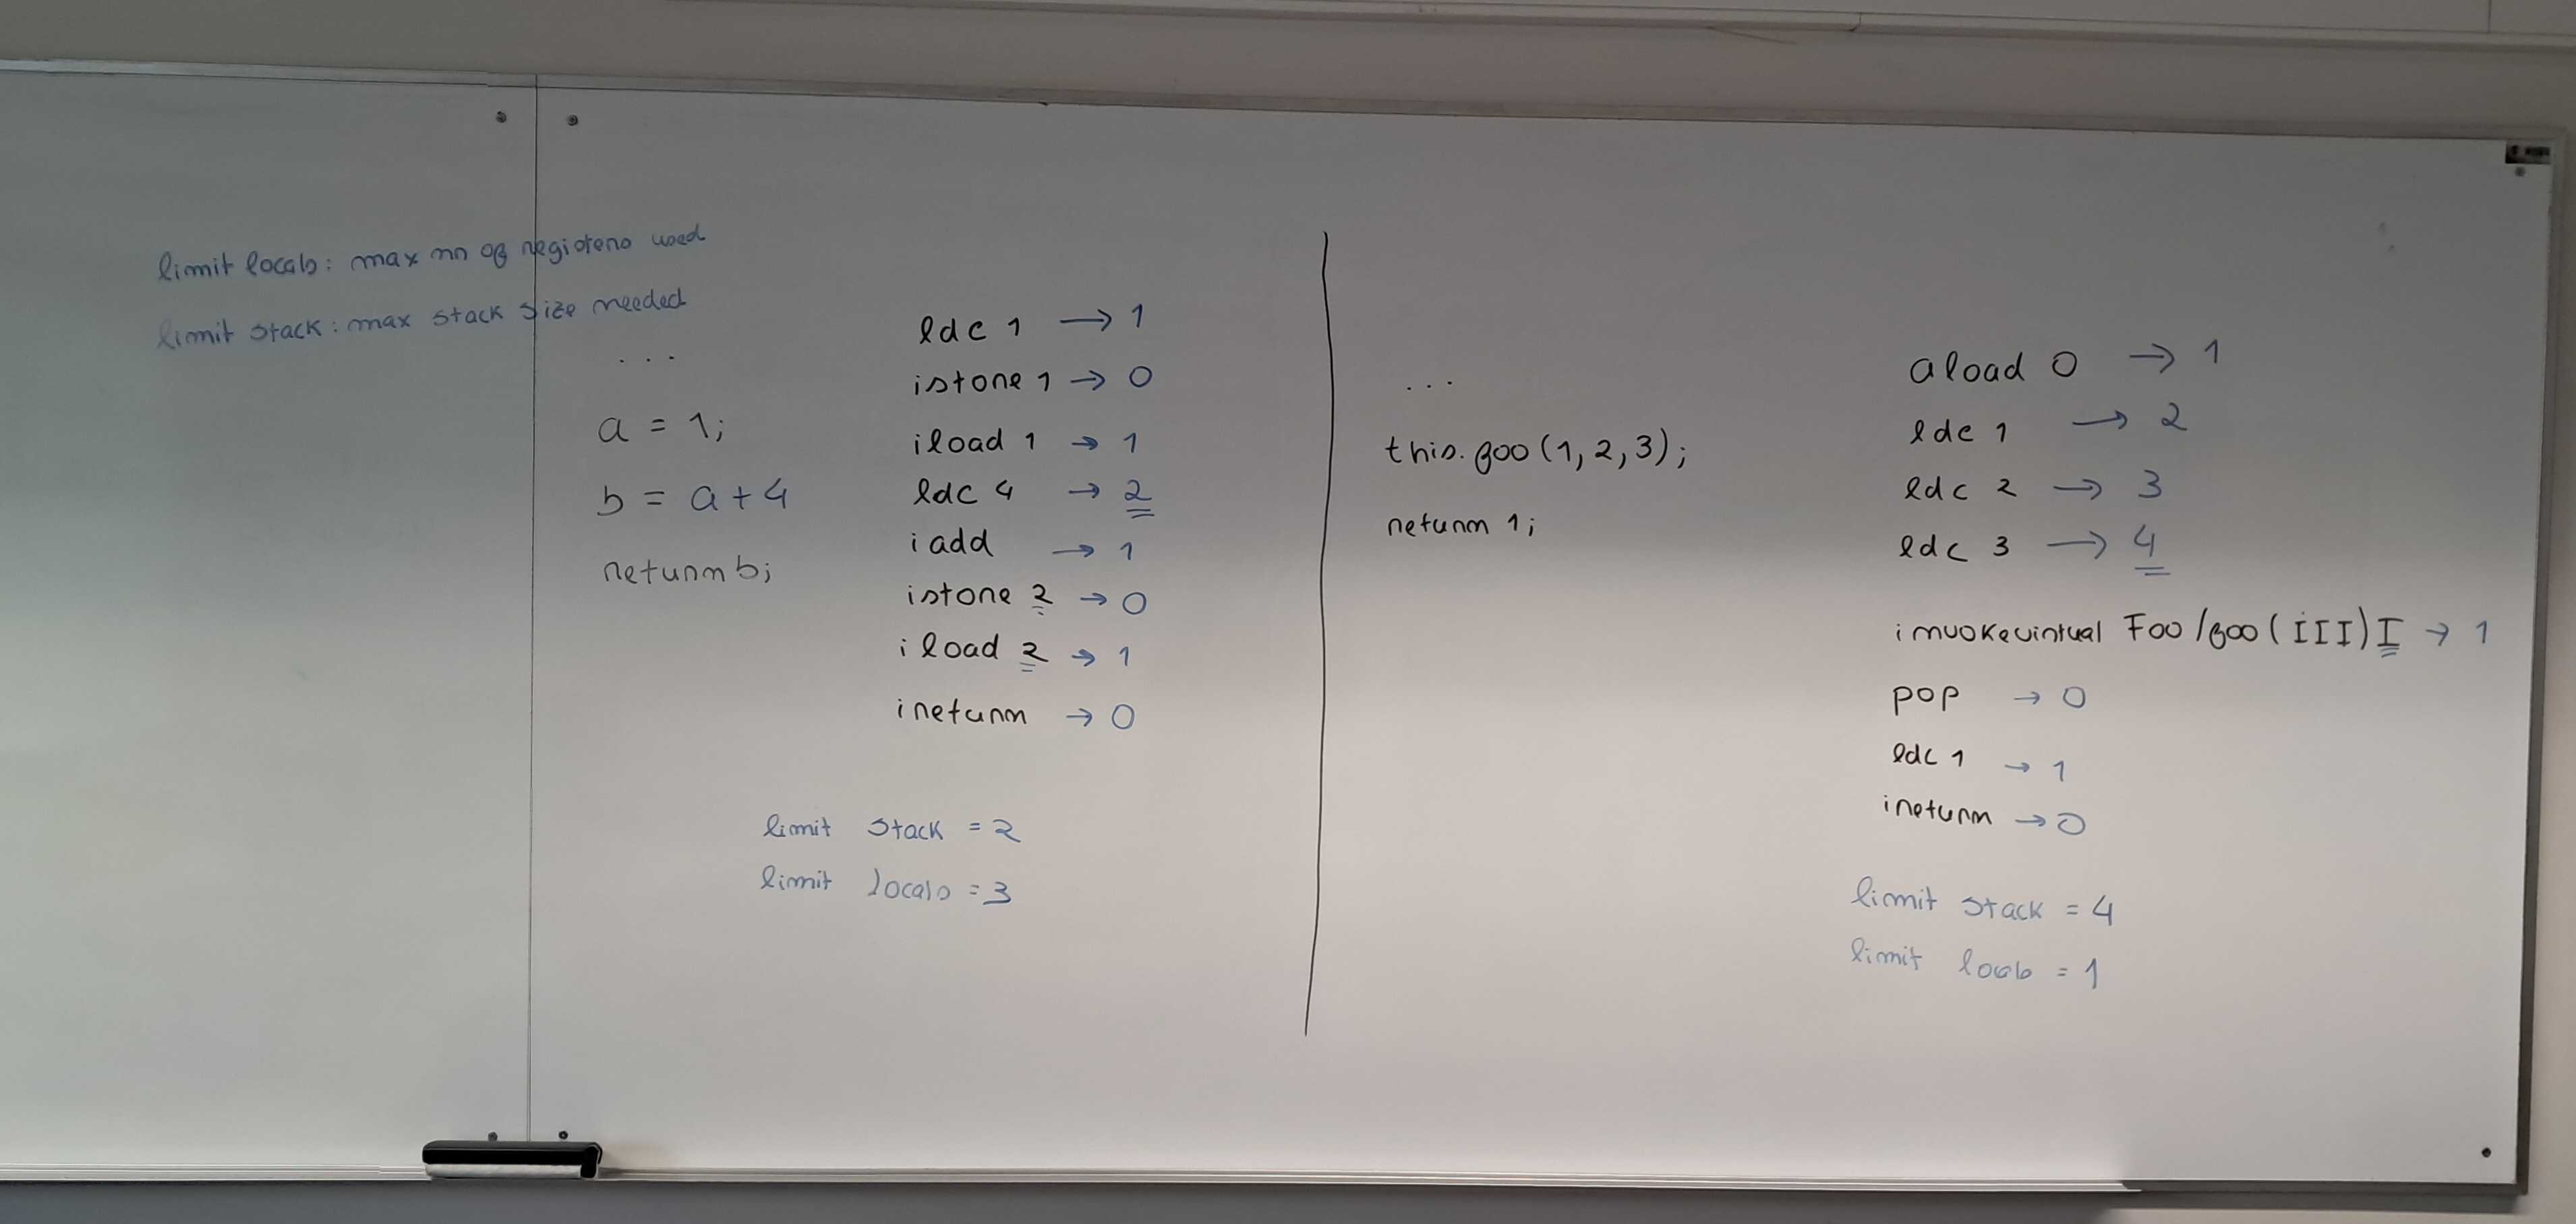 limit locals: max nr of registers used
limit stack: max stack size needed
...
a = 1;
b = a + 4
return b;
ldc 1 → 1
istore 1 → 0
iload 1 → 1
ldc 4 → 2
iadd → 1
istore 2 → 0
iload 2 → 1
ireturn → 0
limit stack = 2
limit locals = 3
...
this.foo(1, 2, 3);
return 1;
aload 0 → 1
ldc 1 → 2
ldc 2 → 3
ldc 3 → 4
invokevirtual Foo/foo(III)I → 1
pop → 0
ldc 1 → 1
ireturn → 0
limit stack = 4
limit locals = 1